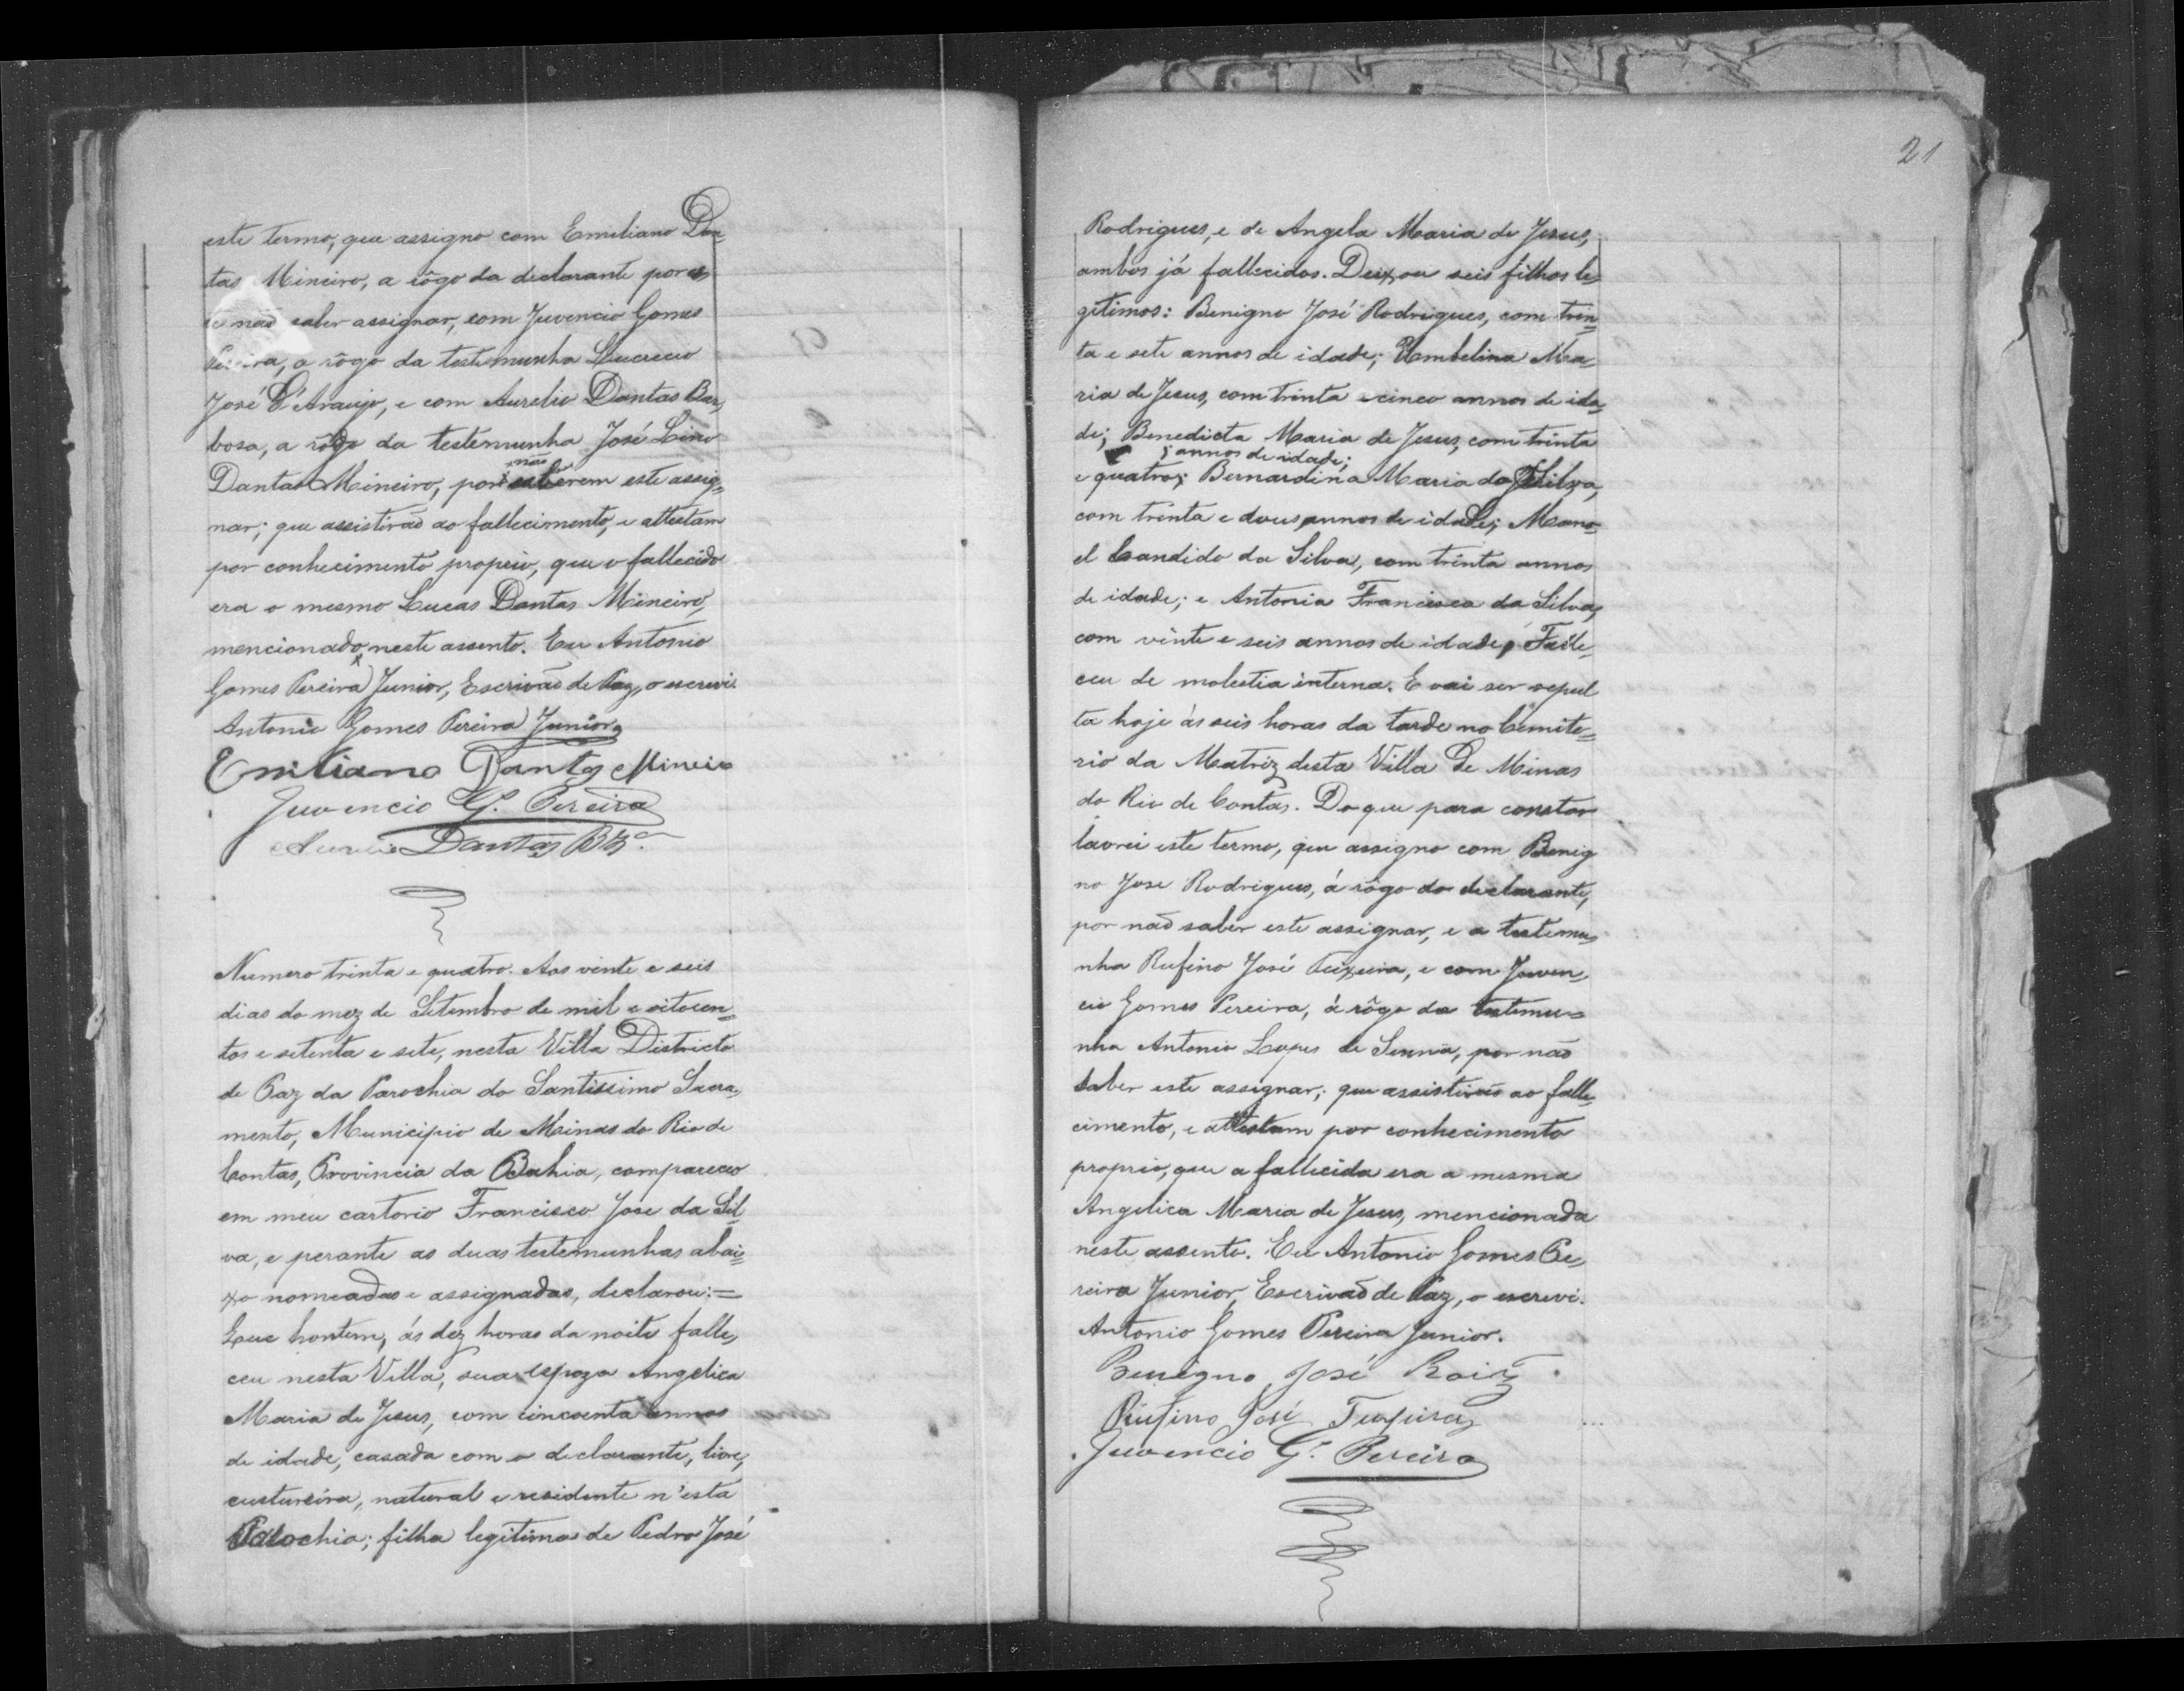 este termo, que assigno com Emiliano Dan=
tas Mineiro, a rôgo da declarante por es
te não saber assignar, com Juvencio Gomes
Pereira, a rôgo da testemunha Lucrecio
José d'Araujo, e com Aurelio Dantas Bar,
bosa, a rôgo da testemunha José Lino
Dantas Mineiro, por não saberem este assig=
nar; que assistirão ao fallecimento, e attestam
por conhecimento proprio, que o fallecido
era o mesmo Lucas Dantas Mineiro,
mencionado neste assento. Eu Antonio
Gomes Pereira Junior, Escrivão de Paz, o escrevi.
Antonio Gomes Pereira Junior
Emiliano Dantas Mineiro
Juvencio G.s Pereira
Aurelio Dantas Bz.a
Numero trinta e quatro. Aos vinte e seis
dias do mez de Setembro de mil e oitocen=
tos e setenta e sete, nesta Villa Districto
de Paz da Parochia do Santissimo Sacra,
mento, Municipio de Minas do Rio de
Contas, Provincia da Bahia, compareceo
em meu cartorio Francisco Jose da Sil
va, e perante as duas testemunhas abai=
xo nomeadas e assignadas, declarou:=
Que hontem, ás dez horas da noite falle,
ceu nesta Villa, sua espoza Angelica
Maria de Jesus, com cincoenta annos
de idade, casada com o declarante, livre,
custureira, natural e residente n'esta
Parochia; filha legitima de Pedro José
21
Rodrigues, e de Angela Maria de Jesus,
ambos já fallecidos. Deixou seis filhos le,
gitimos: Benigno José Rodrigues, com trin=
ta e sete annos de idade; Umbelina Ma=
ria de Jesus, com trinta e cinco annos de ida,
de; Benedicta Maria de Jesus, com trinta
; annos de idade;
e quatro; Bernardina Maria da Silva,
com trinta e dous annos de idade; Mano=
el Candido da Silva, com trinta annos
de idade; e Antonia Francisca da Silva,
com vinte e seis annos de idade, Falle,
ceu de molestia interna. E vai ser sepul
ta hoje ás seis horas da tarde no Cemite=
rio da Matriz desta Villa de Minas
do Rio de Contas. Do que para constar
lavrei este termo, que assigno com Benig
no Jose Rodrigues, á rôgo do declarante,
por não saber este assignar, e a testemu,
nha Rufino José Teixeira, e com Juven,
cio Gomes Pereira, á rôgo da testemu=
nha Antonio Lopes de Senna, por não
saber este assignar; que assistirão ao falle,
cimento, e attestam por conhecimento
proprio, que a fallecida era a mesma
Angelica Maria de Jesus, mencionada
neste assento. Eu Antonio Gomes Pe,
reira Junior, Escrivão de Paz, o escrevi.
Antonio Gomes Pereira Junior.
Benigno José Roiz
Rufino José Teixeira
Juvencio G.s Pereira